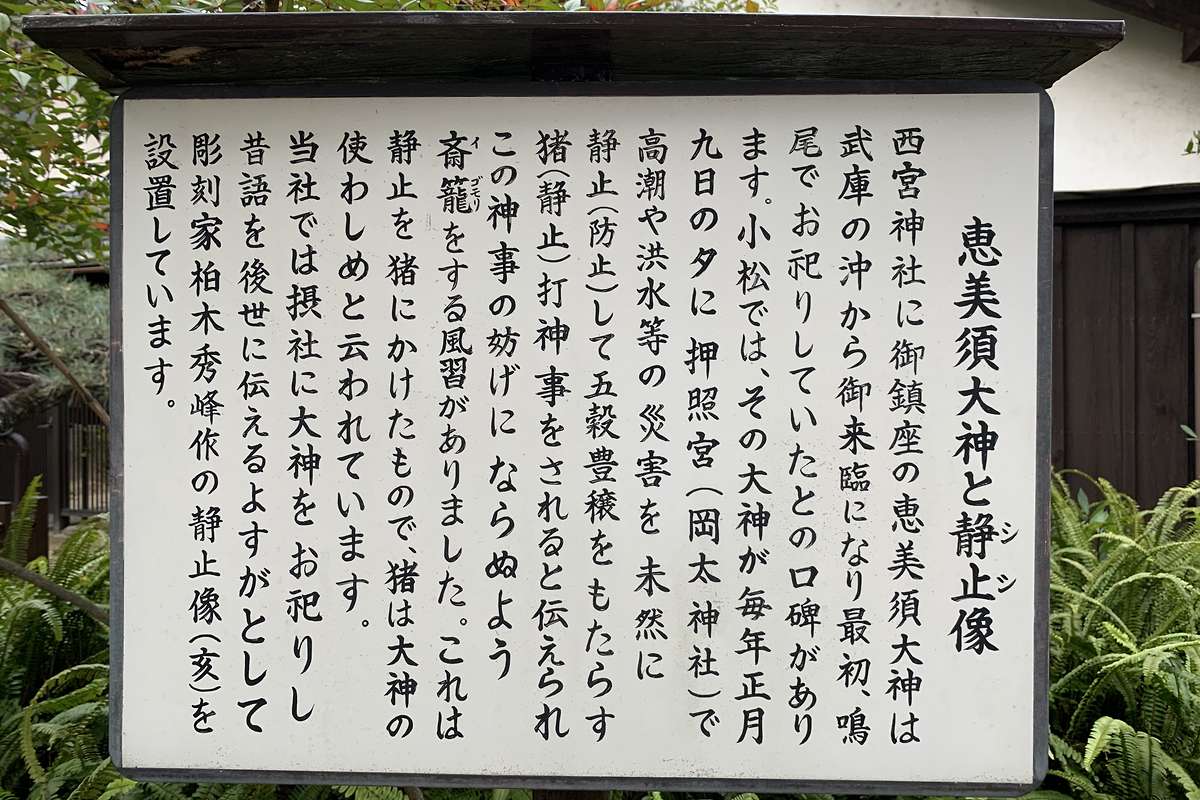 恵美須大神と静止像
シシ
西宮神社に御鎮座の恵美須大神は
武庫の沖から御来臨になり最初、鳴
尾でお祀りしていたとの口碑があり
ます。小松では、その大神が毎年正月
九日の夕に押照宮(岡太神社)で
高潮や洪水等の災害を未然に
静止(防止)して五穀豊穣をもたらす
猪(静止)打神事をされると伝えられ
この神事の妨げにならぬよう
斎籠をする風習がありました。これは
イゴモリ
静止を猪にかけたもので、猪は大神の
使わしめと云われています。
当社では摂社に大神をお祀りし
昔語を後世に伝えるよすがとして
彫刻家柏木秀峰作の静止像(亥)を
設置しています。